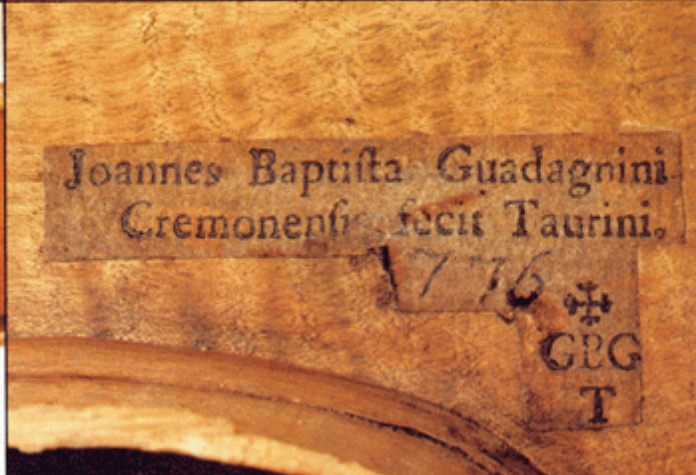 Joannes Baptiſta Guadagnini
Cremonenſis fecit Taurini.
1776
GBG
T